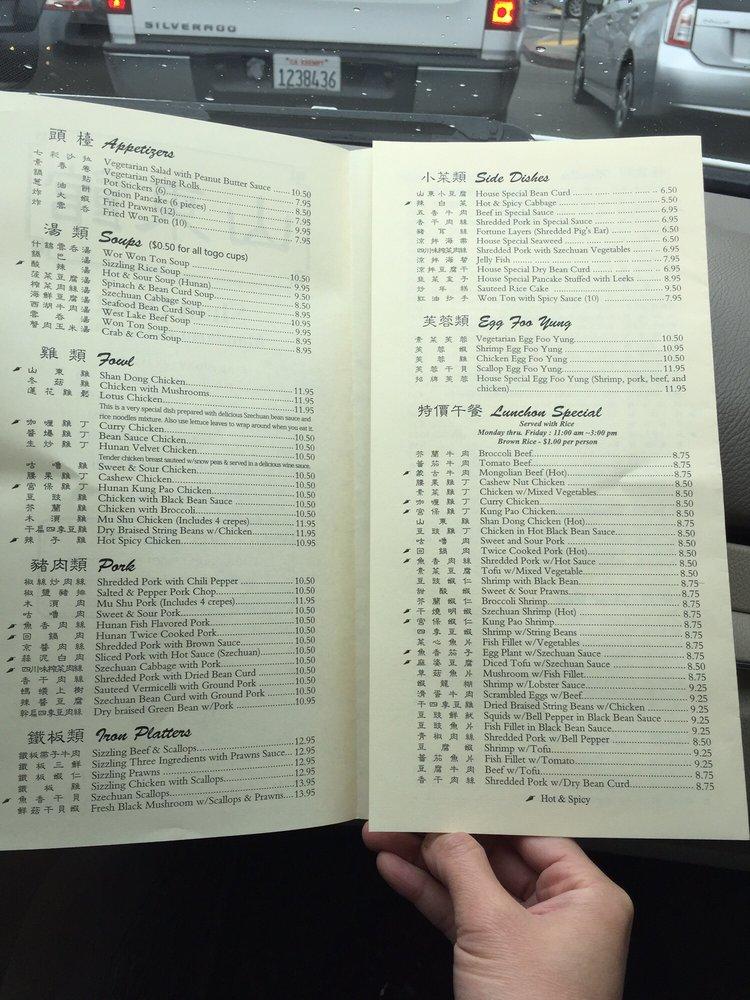 SILVERADO
CA EXEMPT
1238436
頭檯 Appetizers
Vegetarian Salad with Peanut Butter Sauce ...... 10.50
Vegetarian Spring Rolls ...... 7.95
Pot Stickers (6) ...... 8.50
Onion Pancake (6 pieces) ...... 7.95
Fried Prawns (12) ...... 9.95
Fried Won Ton (10) ...... 7.95
湯類 Soups ($0.50 for all togo cups)
Wor Won Ton Soup ...... 10.50
Sizzling Rice Soup ...... 9.95
Hot & Sour Soup (Hunan) ...... 9.50
Spinach & Bean Curd Soup ...... 9.50
Szechuan Cabbage Soup ...... 8.50
Seafood Bean Curd Soup ...... 8.95
West Lake Beef Soup ...... 10.95
Won Ton Soup ...... 9.95
Crab & Corn Soup ...... 8.95
8.95
雞類 Fowl
山東雞 Shan Dong Chicken ...... 11.95
冬菇雞 Chicken with Mushrooms ...... 11.95
蓮花雞鬆 Lotus Chicken ...... 11.95
This is a very special dish prepared with delicious Szechuan bean sauce and
rice noodles mixture. Also use lettuce leaves to wrap around when you eat it.
咖喱雞丁 Curry Chicken ...... 10.50
醬爆雞丁 Bean Sauce Chicken ...... 10.50
生炒雞丁 Hunan Velvet Chicken ...... 10.50
Tender chicken breast sauteed w/snow peas & served in a delicious wine sauce.
咕嚕雞 Sweet & Sour Chicken ...... 10.50
腰果雞丁 Cashew Chicken ...... 10.50
宮保雞丁 Hunan Kung Pao Chicken ...... 10.50
豆豉雞 Chicken with Black Bean Sauce ...... 10.50
芥蘭雞 Chicken with Broccoli ...... 10.50
木須雞 Mu Shu Chicken (Includes 4 crepes) ...... 11.95
干扁四季豆雞 Dry Braised String Beans w/Chicken ...... 11.95
辣子雞 Hot Spicy Chicken ...... 10.95
豬肉類 Pork
椒絲炒肉絲 Shredded Pork with Chili Pepper ...... 10.50
椒鹽豬排 Salted & Pepper Pork Chop ...... 10.50
木須肉 Mu Shu Pork (Includes 4 crepes) ...... 11.95
咕嚕肉 Sweet & Sour Pork ...... 10.50
魚香肉絲 Hunan Fish Flavored Pork ...... 10.50
回鍋肉 Hunan Twice Cooked Pork ...... 10.50
京醬肉絲 Shredded Pork with Brown Sauce ...... 10.50
蒜泥白肉 Sliced Pork with Hot Sauce (Szechuan) ...... 10.50
四川榨菜肉絲 Szechuan Cabbage with Pork ...... 10.50
香干肉絲 Shredded Pork with Dried Bean Curd ...... 10.50
螞蟻上樹 Sauteed Vermicelli with Ground Pork ...... 10.50
辣醬豆腐 Szechuan Bean Curd with Ground Pork ...... 10.50
幹扁四季豆肉絲 Dry braised Green Bean w/Pork ...... 10.95
鐵板類 Iron Platters
鐵板帶子牛肉 Sizzling Beef & Scallops ...... 12.95
鐵板三鮮 Sizzling Three Ingredients with Prawns Sauce ...... 12.95
鐵板蝦仁 Sizzling Prawns ...... 12.95
鐵板雞 Sizzling Chicken with Scallops ...... 12.95
魚香干貝 Szechuan Scallops ...... 13.95
鮮菇干貝蝦 Fresh Black Mushroom w/Scallops & Prawns .... 13.95
小菜類 Side Dishes
山東小豆腐 House Special Bean Curd ...... 6.50
辣白菜 Hot & Spicy Cabbage ...... 5.50
五香牛肉 Beef in Special Sauce ...... 6.95
香干肉絲 Shredded Pork in Special Sauce ...... 6.95
豬耳絲 Fortune Layers (Shredded Pig's Ear) ...... 6.50
涼拌海帶 House Special Seaweed ...... 6.50
四川榨菜肉絲 Shredded Pork with Szechuan Vegetables ...... 6.95
涼拌海蜇 Jelly Fish ...... 7.95
涼拌豆腐干 House Special Dry Bean Curd ...... 6.95
韭菜盒子 House Special Pancake Stuffed with Leeks ...... 8.95
炒年糕 Sauteed Rice Cake ...... 9.50
紅油炒手 Won Ton with Spicy Sauce (10) ...... 7.95
芙蓉類 Egg Foo Yung
素菜芙蓉 Vegetarian Egg Foo Yong ...... 10.50
芙蓉蝦 Shrimp Egg Foo Yong ...... 10.95
芙蓉雞 Chicken Egg Foo Yong ...... 10.50
芙蓉干貝 Scallop Egg Foo Yong ...... 11.95
招牌芙蓉 House Special Egg Foo Yong (Shrimp, pork, beef, and
chicken) ...... 11.95
特價午餐 Lunchon Special
Served with Rice
Monday thru. Friday : 11:00 am ~3:00 pm
Brown Rice - $1.00 per person
芥蘭牛肉 Broccoli Beef ...... 8.75
蕃茄牛肉 Tomato Beef ...... 8.75
蒙古牛肉 Mongolian Beef (Hot) ...... 8.75
腰果雞丁 Cashew Nut Chicken ...... 8.50
素菜雞丁 Chicken w/Mixed Vegetables ...... 8.50
咖喱雞丁 Curry Chicken ...... 8.50
宮保雞丁 Kung Pao Chicken ...... 8.50
山東雞 Shan Dong Chicken (Hot) ...... 8.75
豆豉雞丁 Chicken in Hot Black Bean Sauce ...... 8.50
咕嚕肉 Sweet and Sour Pork ...... 8.50
回鍋肉 Twice Cooked Pork (Hot) ...... 8.50
魚香肉絲 Shredded Pork w/Hot Sauce ...... 8.50
素菜豆腐 Tofu w/Mixed Vegetable ...... 8.50
豆豉蝦仁 Shrimp with Black Bean ...... 8.75
甜酸蝦 Sweet & Sour Prawns ...... 8.75
芥蘭蝦仁 Broccoli Shrimp ...... 8.75
干燒明蝦 Szechuan Shrimp (Hot) ...... 8.75
宮保蝦仁 Kung Pao Shrimp ...... 8.75
四季豆蝦 Shrimp w/String Beans ...... 8.75
菜心魚片 Fish Fillet w/Vegetables ...... 8.75
魚香茄子 Egg Plant w/Szechuan Sauce ...... 8.75
麻婆豆腐 Diced Tofu w/Szechuan Sauce ...... 8.50
草菇魚片 Mushroom w/Fish Fillet ...... 8.75
蝦龍糊 Shrimp w/Lobster Sauce ...... 9.25
滑蛋牛肉 Scrambled Eggs w/Beef ...... 8.75
干四季豆雞 Dried Braised String Beans w/Chicken ...... 9.25
豆豉鮮魷 Squids w/Bell Pepper in Black Bean Sauce ...... 9.25
豆豉魚片 Fish Fillet in Black Bean Sauce ...... 9.25
青椒肉絲 Shredded Pork w/Bell Pepper ...... 8.50
豆腐蝦 Shrimp w/Tofu ...... 9.25
蕃茄魚片 Fish Fillet w/Tomato ...... 9.25
豆腐牛肉 Beef w/Tofu ...... 8.75
香干肉絲 Shredded Pork w/Dry Bean Curd ...... 8.75
Hot & Spicy